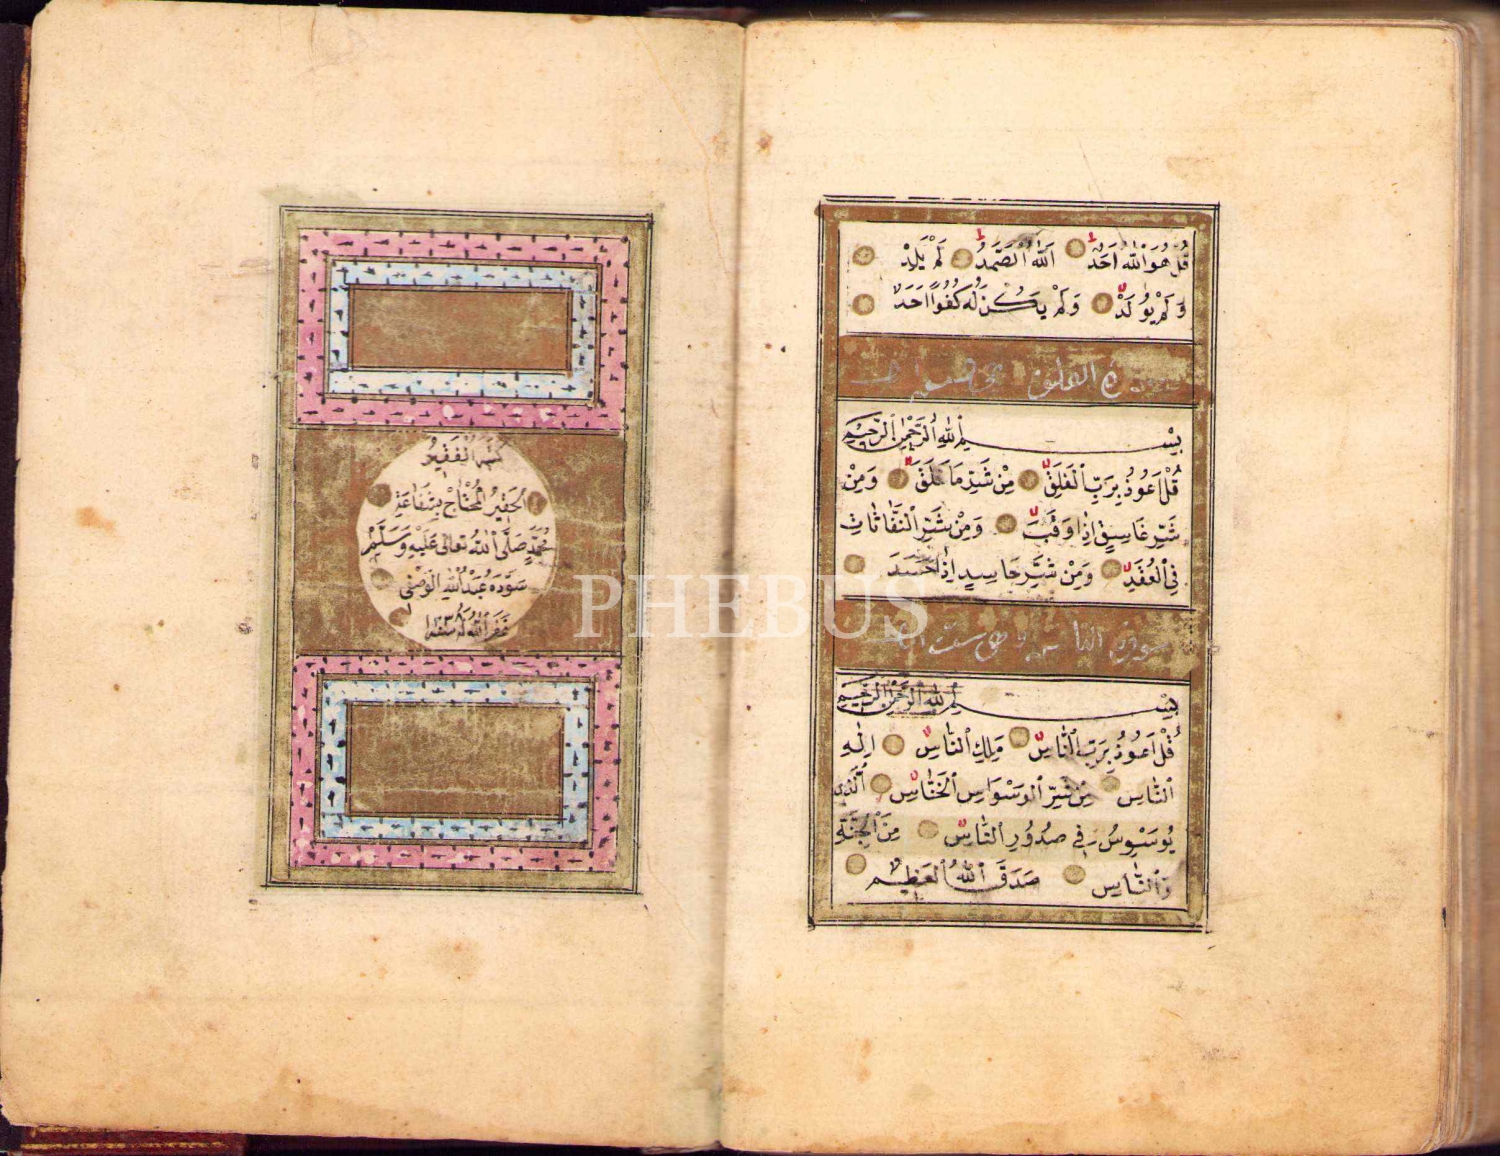 قُلْ هُوَ اللّٰهُ اَحَدٌ اَللّٰهُ الصَّمَدُ لَمْ يَلِدْ
وَلَمْ يُولَدْ وَلَمْ يَكُنْ لَهُ كُفُوًا اَحَدٌ
الفلق
بِسْمِ اللّٰهِ الرَّحْمٰنِ الرَّحِيمِ
قُلْ اَعُوذُ بِرَبِّ الْفَلَقِ مِنْ شَرِّ مَا خَلَقَ وَمِنْ
شَرِّ غَاسِقٍ اِذَا وَقَبَ وَمِنْ شَرِّ النَّفَّاثَاتِ
فِي الْعُقَدِ وَمِنْ شَرِّ حَاسِدٍ اِذَا حَسَدَ
سورة الناس
بِسْمِ اللّٰهِ الرَّحْمٰنِ الرَّحِيمِ
قُلْ اَعُوذُ بِرَبِّ النَّاسِ مَلِكِ النَّاسِ اِلٰهِ
النَّاسِ مِنْ شَرِّ الْوَسْوَاسِ الْخَنَّاسِ اَلَّذِى
يُوَسْوِسُ فِي صُدُورِ النَّاسِ مِنَ الْجِنَّةِ
وَالنَّاسِ صَدَقَ اللّٰهُ الْعَظِيمُ
كتبه الْفَقِيرُ
الْحَقِيرُ الْمُحْتَاجُ بِشَفَاعَةِ
مُحَمَّدٍ صَلَّى اللّٰهُ تَعَالٰى عَلَيْهِ وَسَلَّمَ
سَوَّدَهُ عَبْدُ اللّٰهِ الْوَصْفِى
غَفَرَ اللّٰهُ لَهُ
PHEBUS